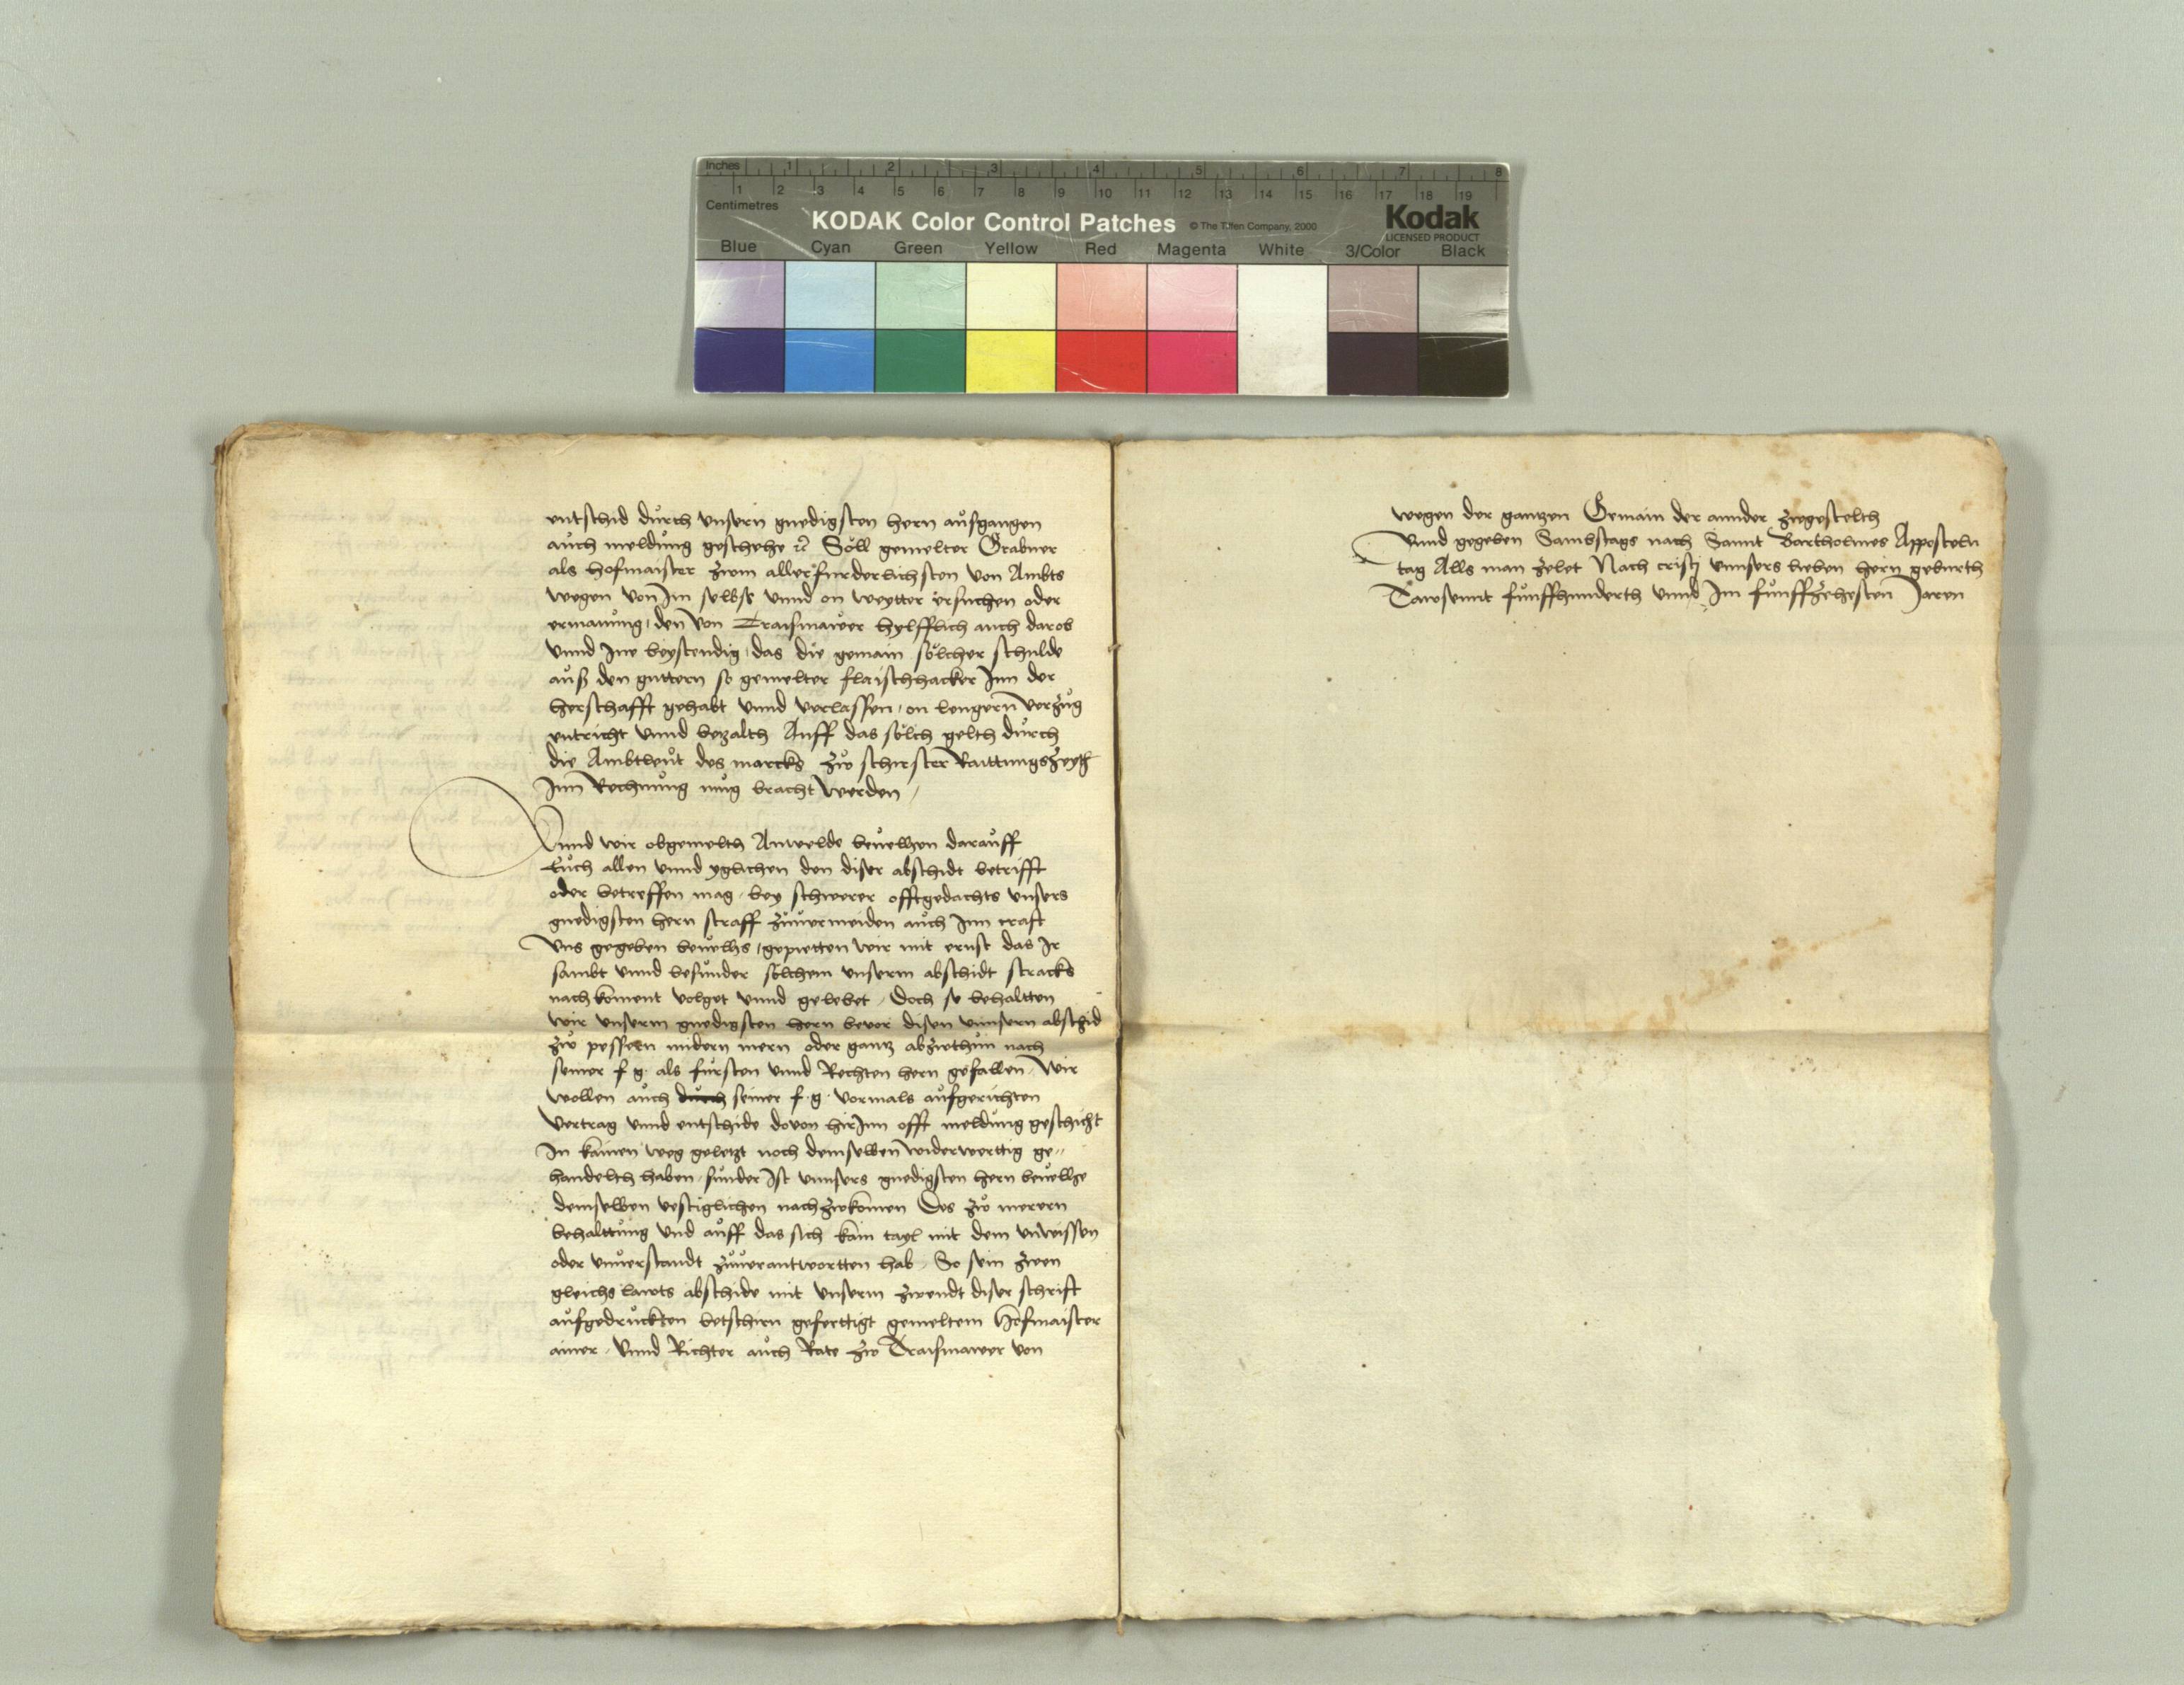 Inches 1 2 3 4 5 6 7 8
1 2 3 4 5 6 7 8 9 10 11 12 13 14 15 16 17 18 19
Centimetres
KODAK Color Control Patches © The Tiffen Company, 2000 Kodak
LICENSED PRODUCT
Blue Cyan Green Yellow Red Magenta White 3/Color Black
entschid durch unsern gnedigsten hern aůsgangen
aůch meldůng geschehe Soll gemelter Grabner
als hofmaister zwm allerfurderlichsten von Ambts
wegen von Im selbst unnd on weytter ersuchen oder
ermanůng, den von Traismawer hylfflich auch darob
unnd Ine beystendig, das die gemain sölcher schulde
aůß den guttern so gemelter flaischhacker Inn der
herschafft gehabt unnd verlassen, on lengern verzůg
entricht unnd bezalth Auff das sölch gelth důrch
die Ambtleůt des marcks zw schirster Raittungszeyth
Inn Rechnůng můg bracht werden,
Unnd wir obgemelth Anwelde bevelhen daraůff
Eůch allen unnd yglichen den diser abschidt betrifft
oder betreffen mag, bey schwerer offtgedachts unsers
gnedigsten hern straff zůvermeiden aůch Inn craft
uns gegeben bevelhs, gepietten wir mit ernst das Ir
sambt unnd besůnder sölchem unserm abschidt stracks
nachkoment volget unnd gelebet, Doch so behaltten
wir unserm gnedigsten hern bevor disen unnsern abschid
zw pessern mindern mern oder gantz abzwthůn nach
seiner f. g. als fůrsten unnd Rechten hern gefallen, Wir
wollen aůch důrch seiner f. g. vormals aůfgerichten
vertrag unnd entschide dovon hirInn offt meldůng geschicht
In kainen weg geletzt noch demselben widerwerttig ge-
handelth haben, sůnder Ist unnsers gnedigsten hern bevelhe
demselben vestiglichen nachzwkomen Des zw merern
behalttůng und aůff das sich kain tayl mit dem unwissen
oder unverstandt zůverantwortten hab, So sein zwen
gleichs lawts abschide mit unserm zwendt diser schrift
aůfgedrůckten betschirn geferttigt gemeltem Hofmaister
ainer, Unnd Richter aůch Rate zw Traismawer von
wegen der gantzen Gemain der annder zwgestelth
Unnd gegeben Sambstags nach Sannt Bartholmes Apposteln
tag Alls man zelet Nach cristj unnsers lieben hern geburth
Tawsennt fůnffhunderth unnd Im fůnffzehesten Jaren